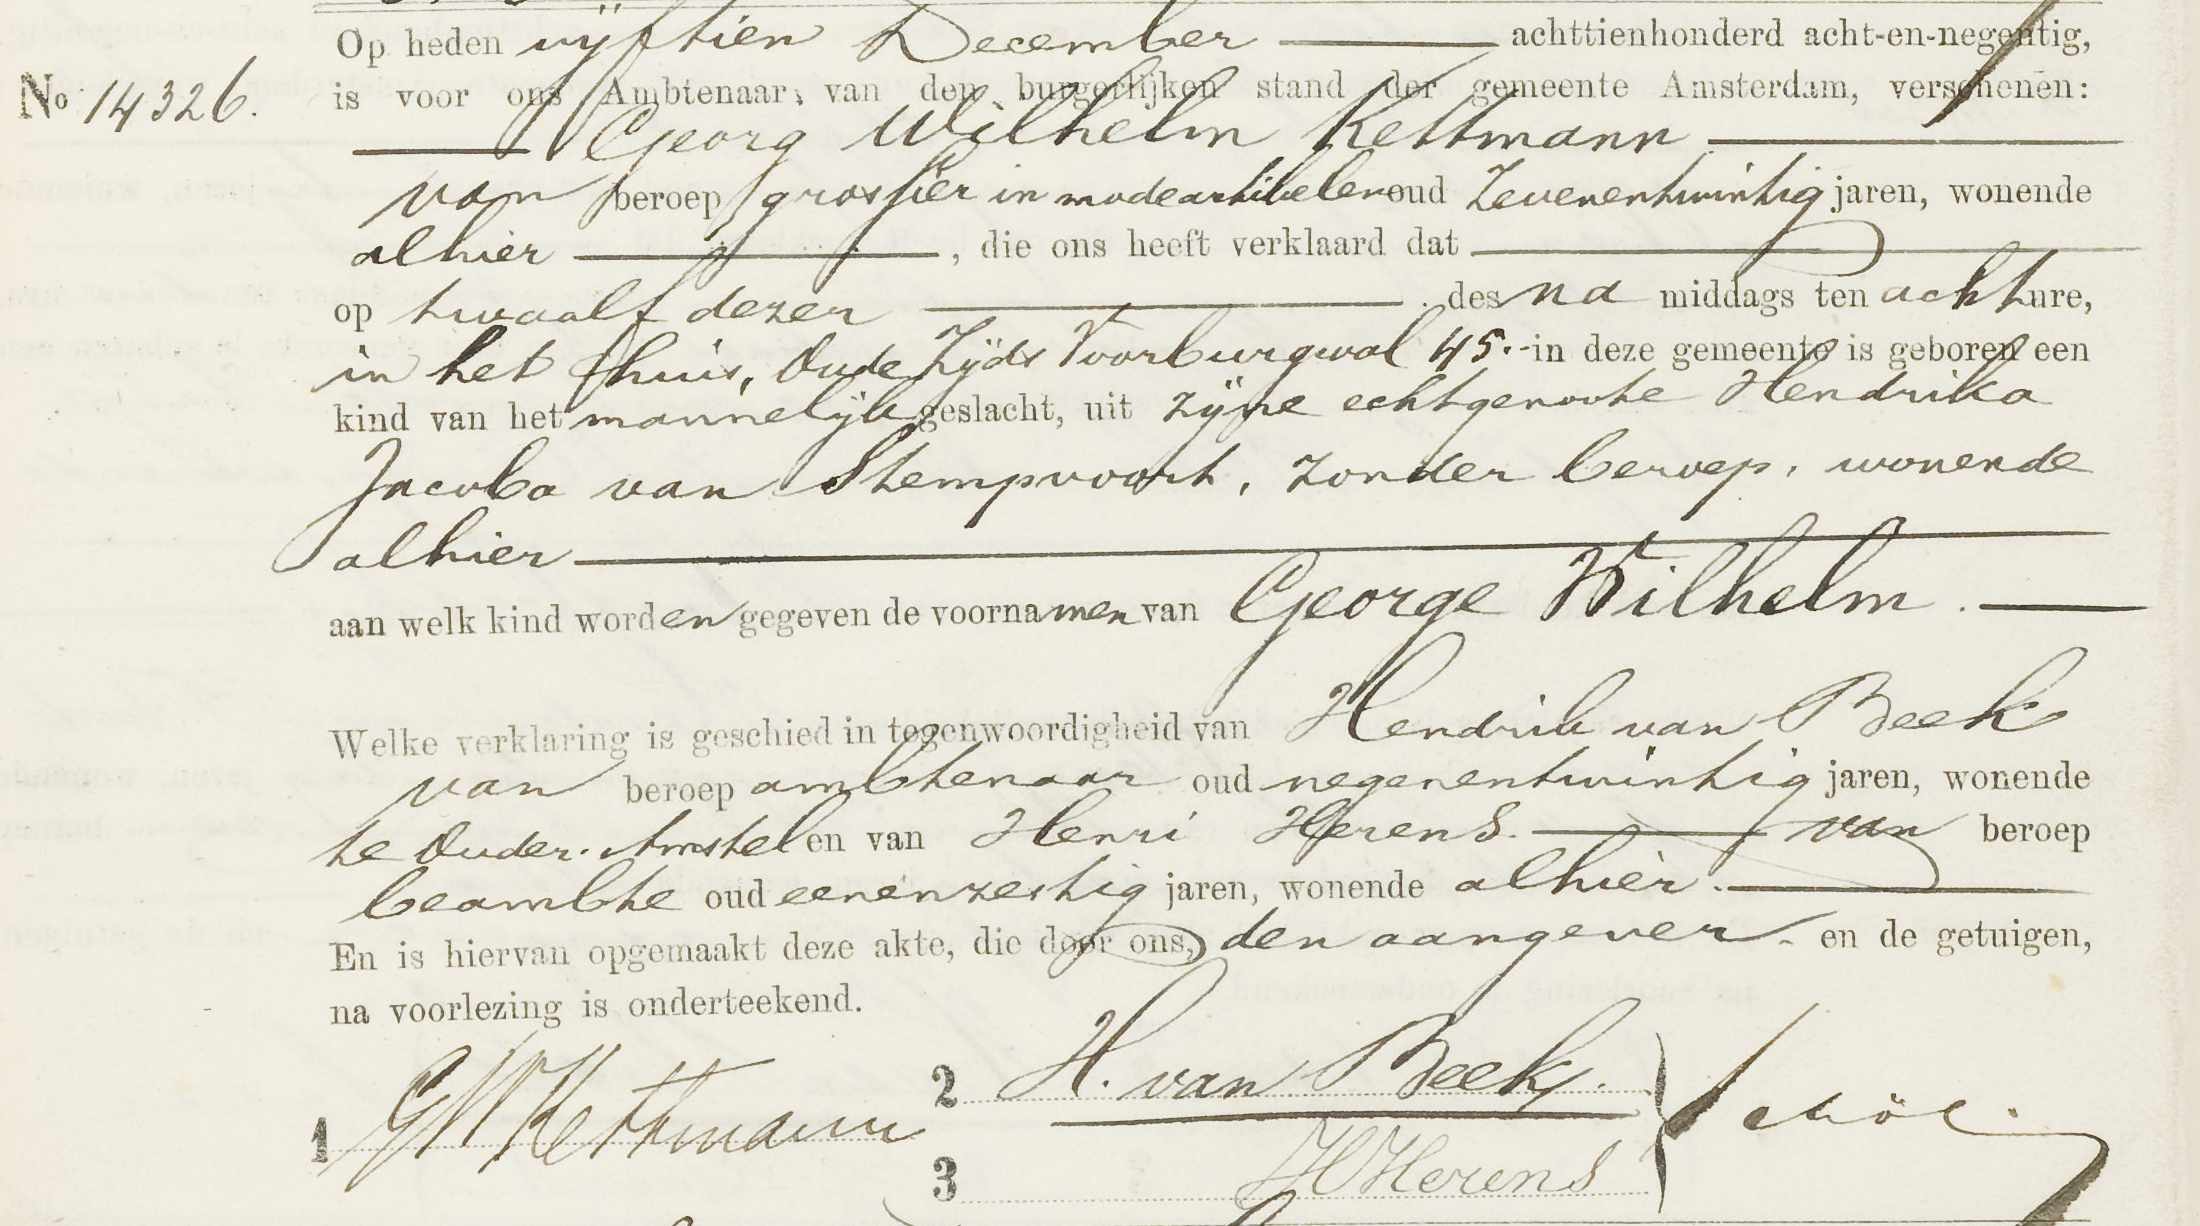 Op heden vijftien December achttienhonderd acht-en-negentig,
No 14326. is voor ons Ambtenaar van den burgerlijken stand der gemeente Amsterdam, verschenen:
Georg Wilhelm Kettmann
van beroep grossier in modeartikelen oud Zevenentwintig jaren, wonende
alhier, die ons heeft verklaard dat
op twaalf dezer des na middags ten acht ure,
in het huis, Oude Zijds Voorburgwal 45. in deze gemeente is geboren een
kind van het mannelijk geslacht, uit zijne echtgenoote Hendrika
Jacoba van Stempvoort, zonder beroep, wonende
alhier
aan welk kind worden gegeven de voornamen van George Wilhelm.
Welke verklaring is geschied in tegenwoordigheid van Hendrik van Beek
van beroep ambtenaar oud negenentwintig jaren, wonende
te Ouder-Amstel en van Henri Herens. van beroep
beambte oud eenenzestig jaren, wonende alhier.
En is hiervan opgemaakt deze akte, die door ons, den aangever en de getuigen,
na voorlezing is onderteekend.
1 GW Kettmann
2 H. van Beek.
3 HHerens